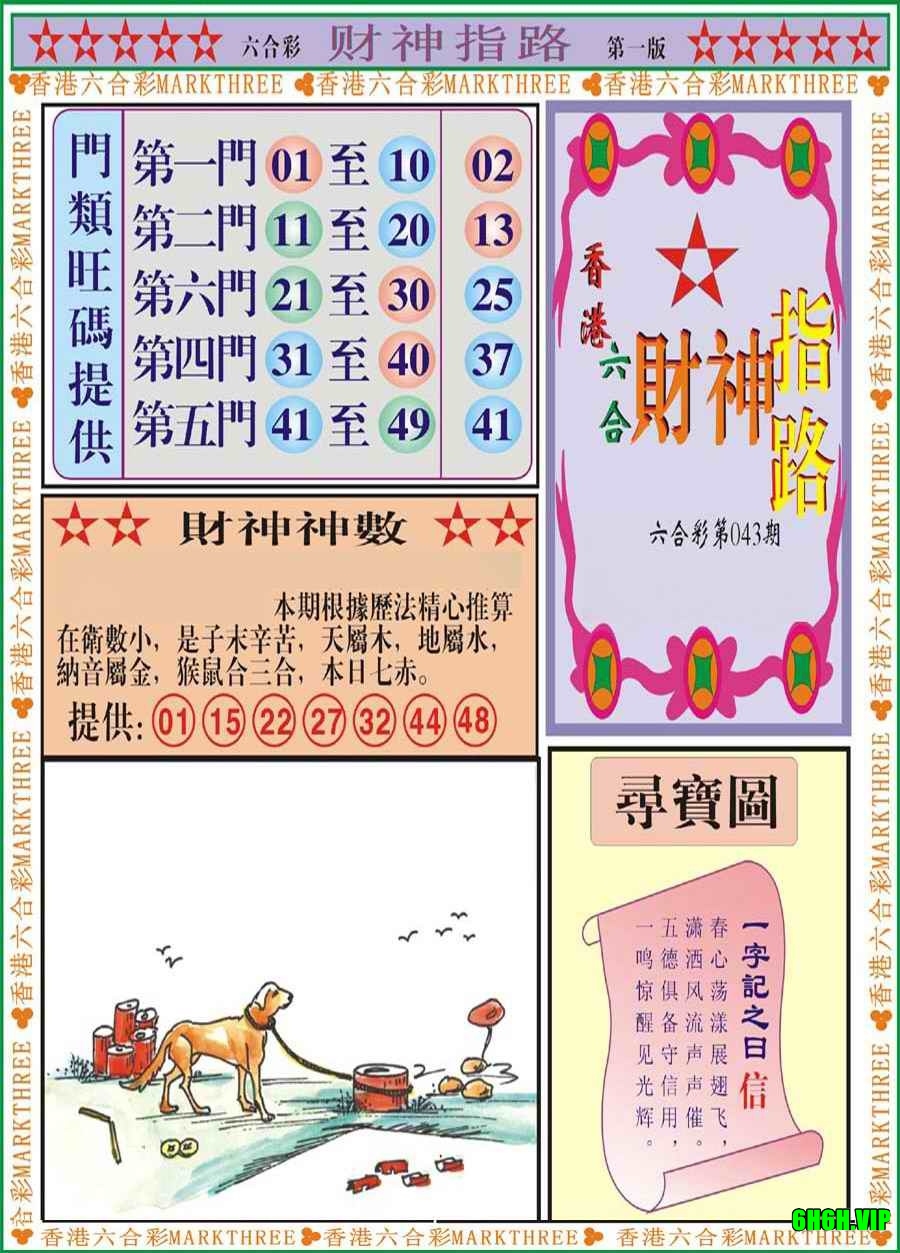 六合彩 财神指路 第一版
香港六合彩MARKTHREE 香港六合彩MARKTHREE 香港六合彩MARKTHREE
門類旺碼提供
第一門 01 至 10 02
第二門 11 至 20 13
第六門 21 至 30 25
第四門 31 至 40 37
第五門 41 至 49 41
香港六合
財神指路
六合彩第043期
財神神數
本期根據歷法精心推算
在衛數小，是子末辛苦，天屬木，地屬水，
納音屬金，猴鼠合三合，本日七赤。
提供: 01 15 22 27 32 44 48
尋寶圖
一字記之曰 信
春心荡漾展翅飞，
潇洒风流声声催。
五德俱备守信用，
一鸣惊醒见光辉。
香港六合彩MARKTHREE 香港六合彩MARKTHREE 香港六合彩MARKTHREE 合彩MARKTHREE
香港六合彩MARKTHREE 香港六合彩MARKTHREE 香港六合彩MARKTHREE 香港六合彩MARKTHREE
香港六合彩MARKTHREE 香港六合彩MARKTHREE 香港六合彩MARKTHREE
6H6H.VIP